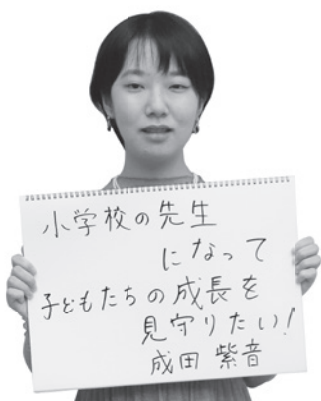 小学校の先生
になって
子どもたちの成長を
見守りたい!
成田 紫音